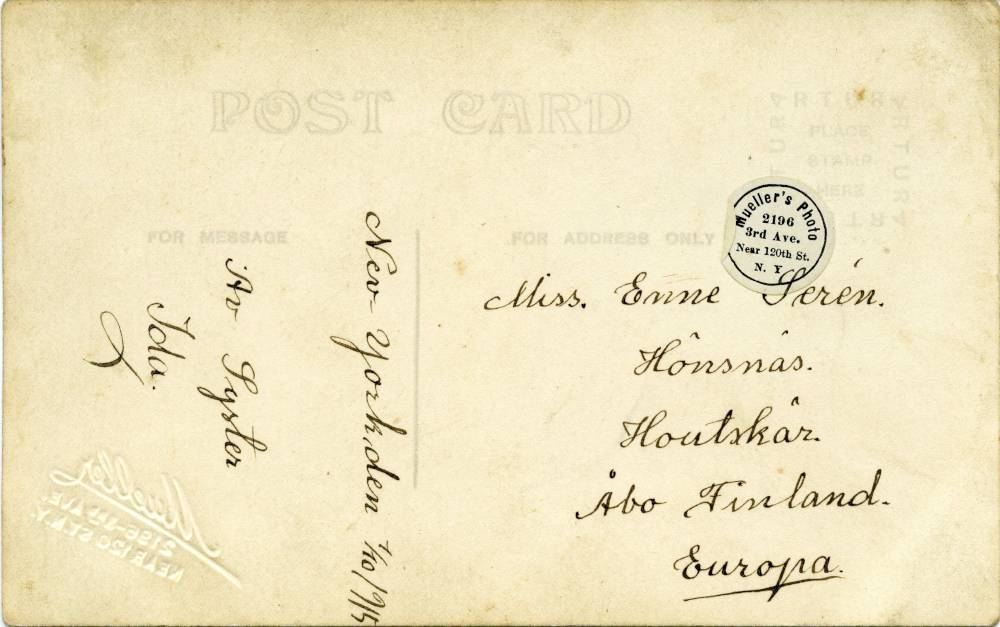 POST CARD
ARTURA
ARTURA
ARTURA
PLACE
STAMP
HERE
FOR MESSAGE
FOR ADDRESS ONLY
Mueller's Photo
2196
3rd Ave.
Near 120th St.
N. Y
Nev York, den 7/10/1915
Av Syster
Ida.
Miss. Enne Serén.
Hönsnäs.
Houtskär.
Åbo Finland.
Europa.
Mueller
2196-3RD AVE.
NEAR 120 ST. N.Y.